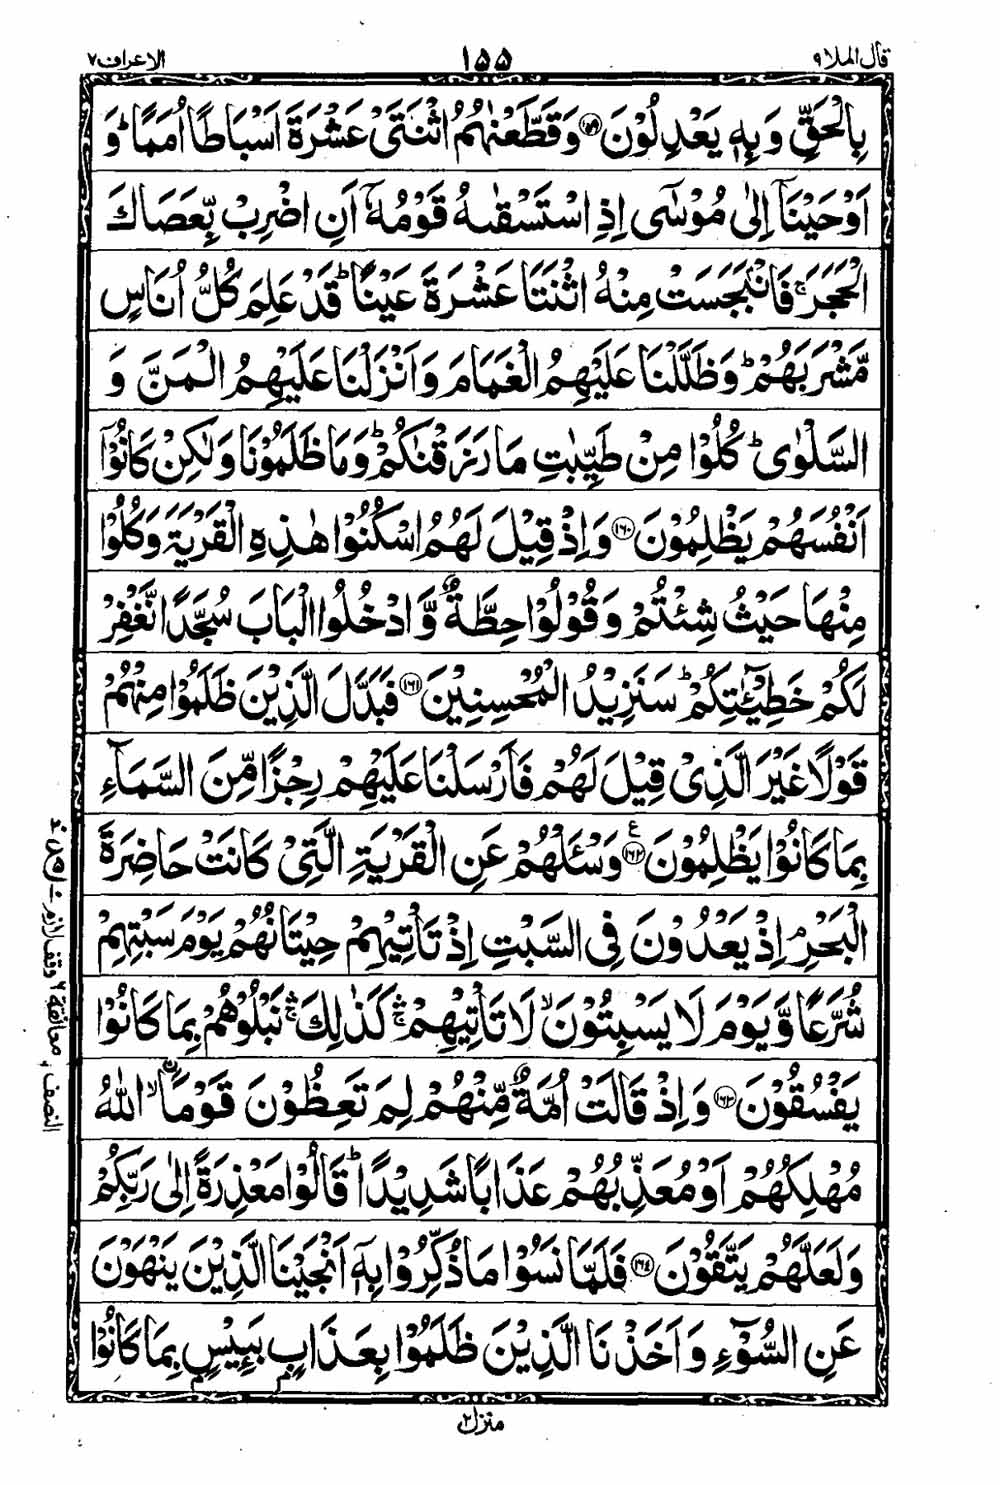 قال الملا ٩
١٥٥
الاعراف ٧
بِالْحَقِّ وَبِهٖ يَعْدِلُوْنَ ﴿١٥٩﴾ وَقَطَّعْنٰهُمُ اثْنَتَيْ عَشْرَةَ اَسْبَاطًا اُمَمًا ؕ وَ
اَوْحَيْنَاۤ اِلٰى مُوْسٰٓى اِذِ اسْتَسْقٰىهُ قَوْمُهٗۤ اَنِ اضْرِبْ بِّعَصَاكَ
الْحَجَرَ ۚ فَانْۢبَجَسَتْ مِنْهُ اثْنَتَا عَشْرَةَ عَيْنًا ؕ قَدْ عَلِمَ كُلُّ اُنَاسٍ
مَّشْرَبَهُمْ ؕ وَظَلَّلْنَا عَلَيْهِمُ الْغَمَامَ وَاَنْزَلْنَا عَلَيْهِمُ الْمَنَّ وَ
السَّلْوٰى ؕ كُلُوْا مِنْ طَيِّبٰتِ مَا رَزَقْنٰكُمْ ؕ وَمَا ظَلَمُوْنَا وَلٰكِنْ كَانُوْۤا
اَنْفُسَهُمْ يَظْلِمُوْنَ ﴿١٦٠﴾ وَاِذْ قِيْلَ لَهُمُ اسْكُنُوْا هٰذِهِ الْقَرْيَةَ وَكُلُوْا
مِنْهَا حَيْثُ شِئْتُمْ وَقُوْلُوْا حِطَّةٌ وَّادْخُلُوا الْبَابَ سُجَّدًا نَّغْفِرْ
لَكُمْ خَطِيْٓـٰٔتِكُمْ ؕ سَنَزِيْدُ الْمُحْسِنِيْنَ ﴿١٦١﴾ فَبَدَّلَ الَّذِيْنَ ظَلَمُوْا مِنْهُمْ
قَوْلًا غَيْرَ الَّذِيْ قِيْلَ لَهُمْ فَاَرْسَلْنَا عَلَيْهِمْ رِجْزًا مِّنَ السَّمَآءِ
بِمَا كَانُوْا يَظْلِمُوْنَ ﴿١٦٢﴾ ع وَسْـَٔلْهُمْ عَنِ الْقَرْيَةِ الَّتِيْ كَانَتْ حَاضِرَةَ
الْبَحْرِ ۘ اِذْ يَعْدُوْنَ فِى السَّبْتِ اِذْ تَاْتِيْهِمْ حِيْتَانُهُمْ يَوْمَ سَبْتِهِمْ
شُرَّعًا وَّيَوْمَ لَا يَسْبِتُوْنَ ۙ لَا تَاْتِيْهِمْ ۛ كَذٰلِكَ ۛ نَبْلُوْهُمْ بِمَا كَانُوْا
يَفْسُقُوْنَ ﴿١٦٣﴾ وَاِذْ قَالَتْ اُمَّةٌ مِّنْهُمْ لِمَ تَعِظُوْنَ قَوْمًا ۙ اللّٰهُ
مُهْلِكُهُمْ اَوْ مُعَذِّبُهُمْ عَذَابًا شَدِيْدًا ؕ قَالُوْا مَعْذِرَةً اِلٰى رَبِّكُمْ
وَلَعَلَّهُمْ يَتَّقُوْنَ ﴿١٦٤﴾ فَلَمَّا نَسُوْا مَا ذُكِّرُوْا بِهٖۤ اَنْجَيْنَا الَّذِيْنَ يَنْهَوْنَ
عَنِ السُّوْٓءِ وَاَخَذْنَا الَّذِيْنَ ظَلَمُوْا بِعَذَابٍۭ بَـِٔيْسٍۭ بِمَا كَانُوْا
منزل ٢
النصف معانقة ٦ وقف لازم